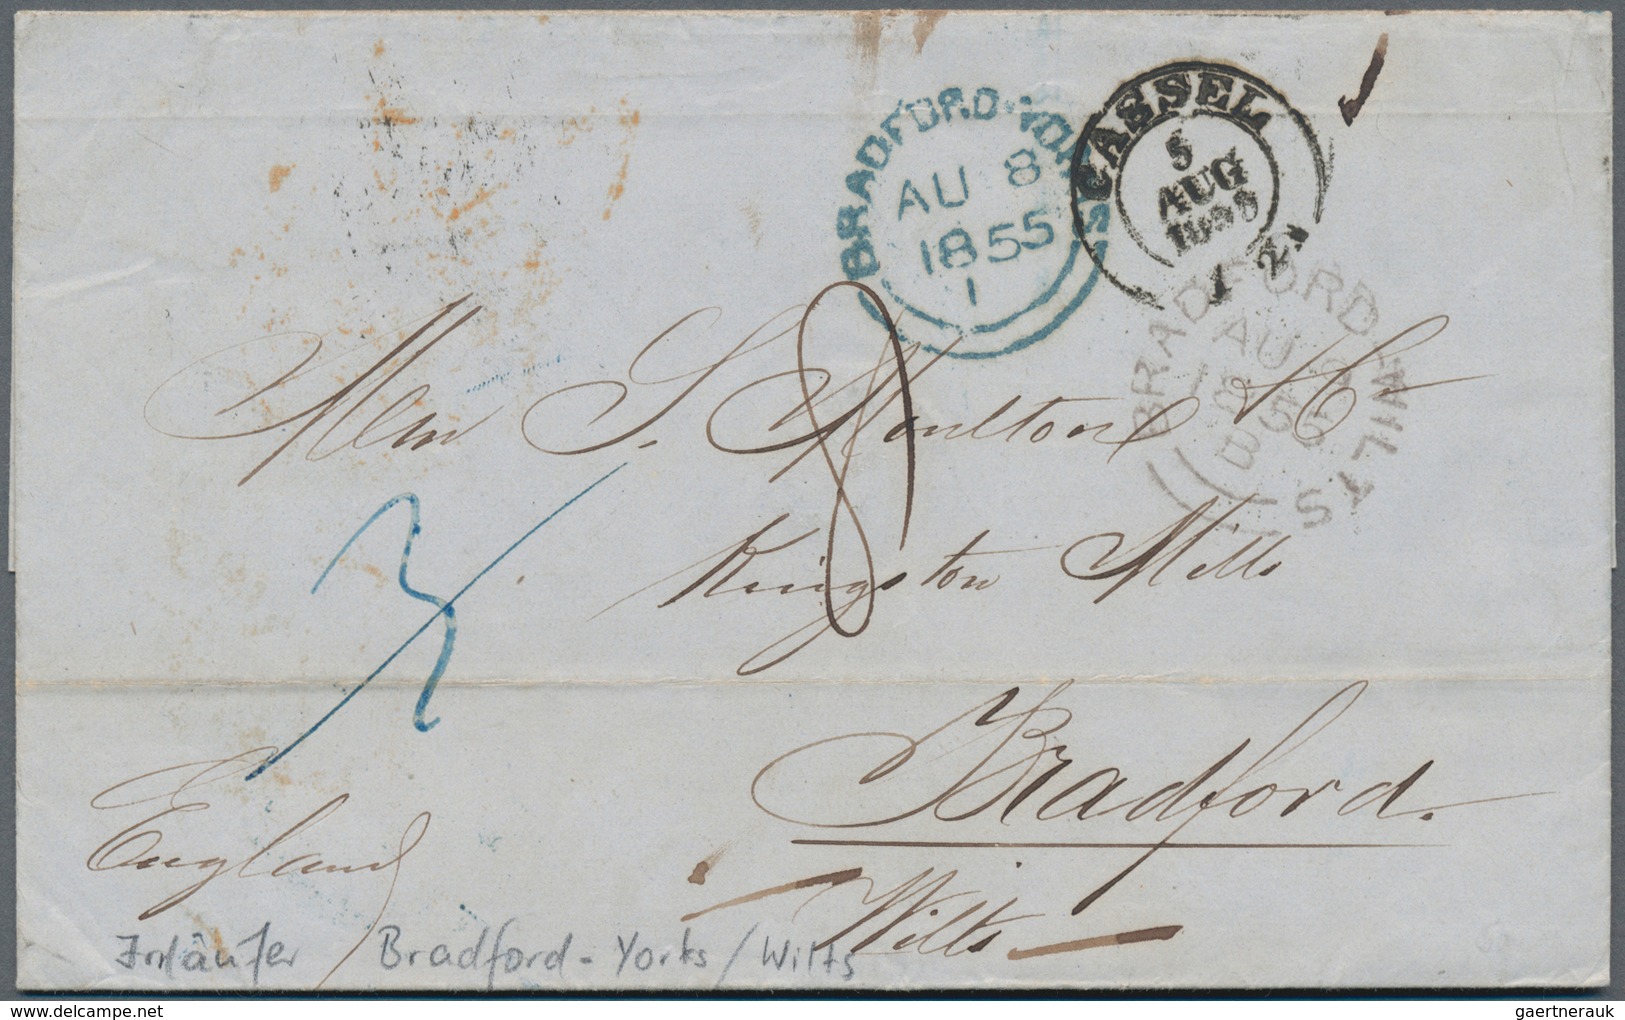 BRADFORD·YORKS
AU 8
1855
1
CASSEL
5
AUG
1855
1 2
BRADFORD-WILTS
AU 9
1855
B
8
Messrs S. Moulton & Co
3
Kingston Mills
Bradford.
Wilts
England
Irrläufer Bradford - Yorks / Wilts
gaertnerauk